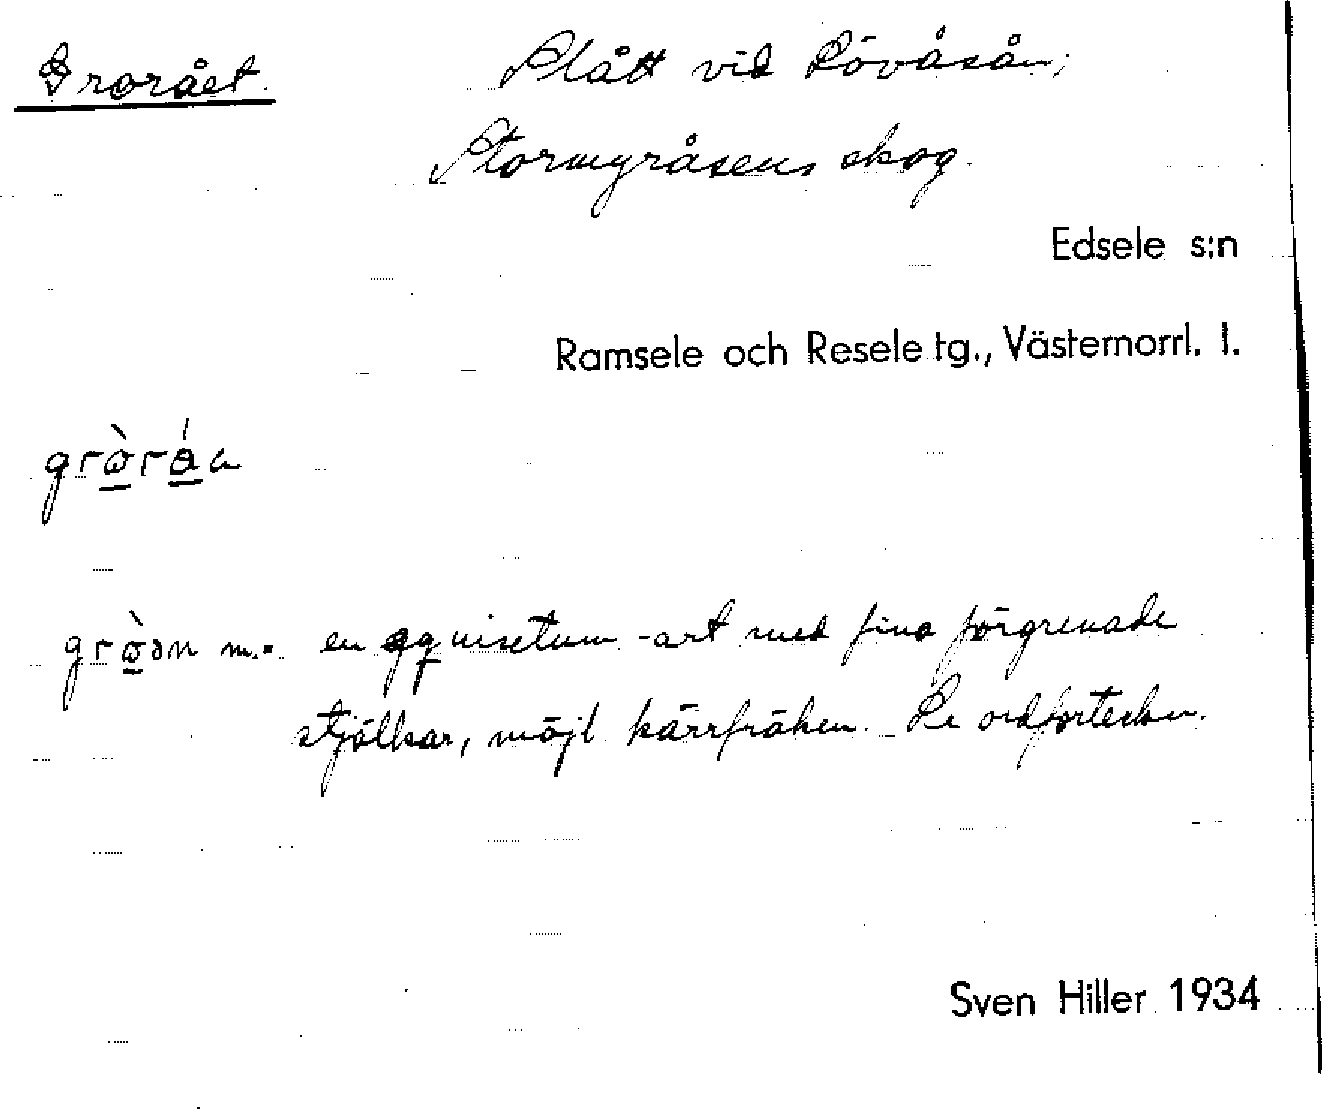 Grorået. Slått vid Rövåsån,
Stormyråsens skog.
Edsele s:n
Ramsele och Resele tg., Västernorrl. l.
en equisetum-art med fina förgrenade
stjälkar, möjl kärrfräken. Se ordförteckn.
Sven Hiller 1934